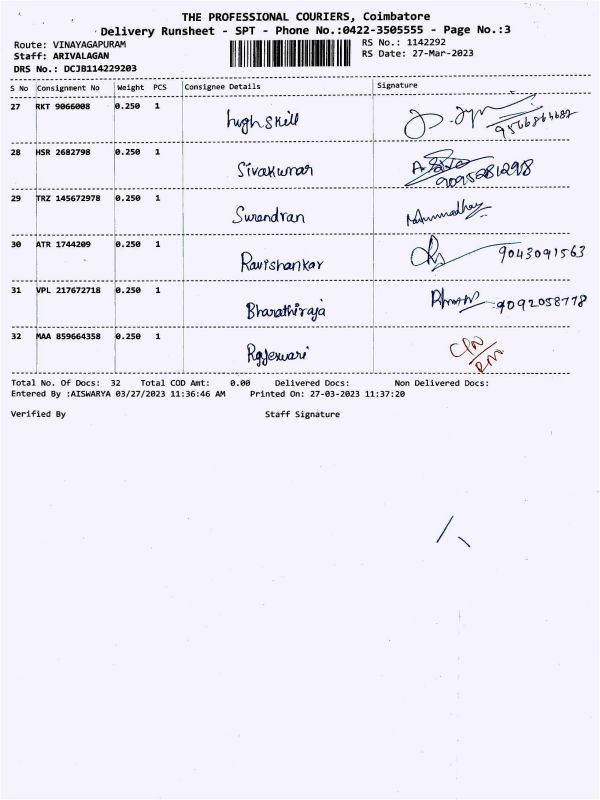 THE PROFESSIONAL COURIERS, Coimbatore
Delivery Runsheet - SPT - Phone No.:0422-3505555 - Page No.:3
Route: VINAYAGAPURAM RS No.: 1142292
Staff: ARIVALAGAN RS Date: 27-Mar-2023
DRS No.: DCJB114229203
S No Consignment No Weight PCS Consignee Details Signature
27 RKT 9066008 0.250 1 hugh skill
28 HSR 2682798 0.250 1 Sivakumar
29 TRZ 145672978 0.250 1 Surendran
30 ATR 1744209 0.250 1 Ravishankar 9043091563
31 VPL 217672718 0.250 1 Bharathiraja 9092058778
32 MAA 859664358 0.250 1 Rajeswari
Total No. Of Docs: 32 Total COD Amt: 0.00 Delivered Docs: Non Delivered Docs:
Entered By :AISWARYA 03/27/2023 11:36:46 AM Printed On: 27-03-2023 11:37:20
Verified By Staff Signature